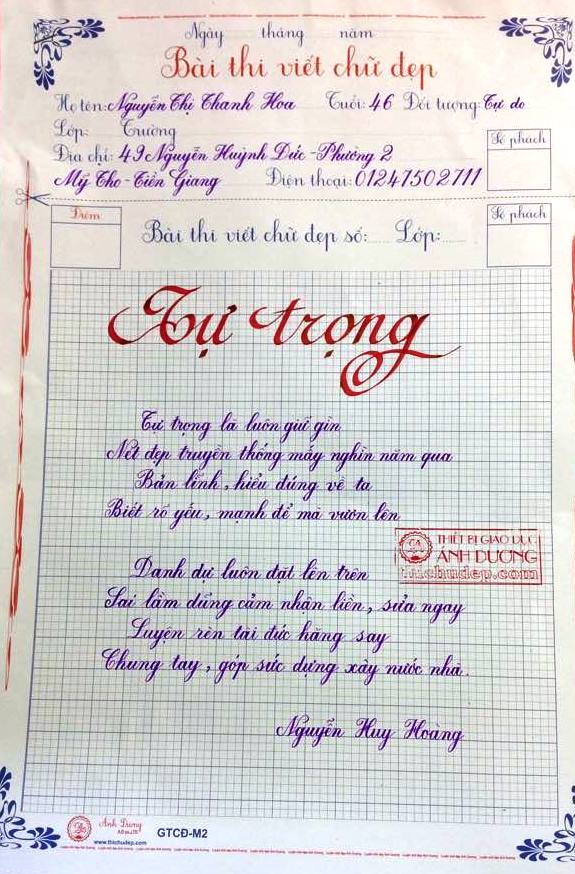 Ngày tháng năm
Bài thi viết chữ đẹp
Họ tên: Nguyễn Thị Thanh Hoa Tuổi: 46 Đối tượng: Tự do
Lớp: Trường
Số phách
Địa chỉ: 49 Nguyễn Huỳnh Đức - Phường 2
Mỹ Tho - Tiền Giang Điện thoại: 01247502711
Điểm
Số phách
Bài thi viết chữ đẹp số: Lớp:
Tự trọng
Tự trọng là luôn giữ gìn
Nét đẹp truyền thống mấy nghìn năm qua
Bản lĩnh, hiểu đúng về ta
Biết rõ yếu, mạnh để mà vươn lên
THIẾT BỊ GIÁO DỤC
ÁNH DƯƠNG
thichudep.com
Danh dự luôn đặt lên trên
Sai lầm dũng cảm nhận liền, sửa ngay
Luyện rèn tài đức hăng say
Chung tay, góp sức dựng xây nước nhà.
Nguyễn Huy Hoàng
Ánh Dương
www.thichudep.com
GTCĐ-M2